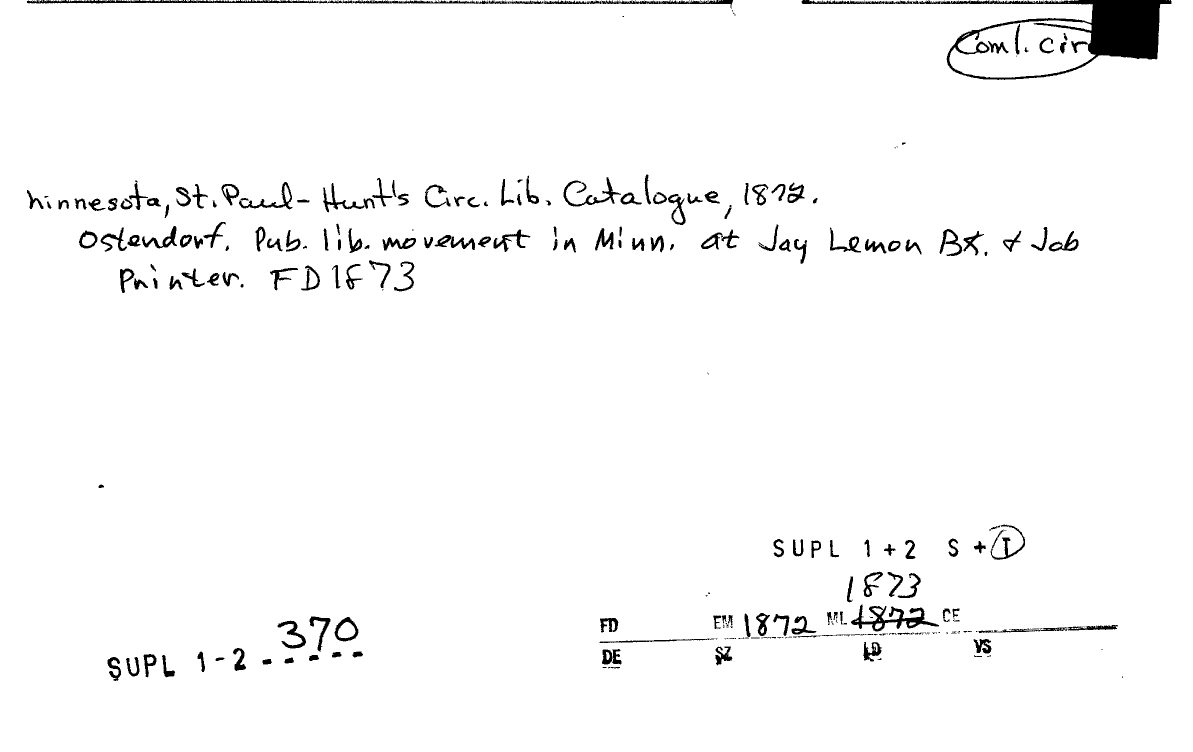 Coml. cir
Minnesota, St. Paul - Hunt's Circ. Lib. Catalogue, 1872.
Ostendorf. Pub. lib. movement in Minn. at Jay Lemon Bk. & Job
Printer. FD 1873
SUPL 1+2 S + I
1873
FD EM 1872 ML 1872 CE
DE SZ LD VS
370
SUPL 1-2 -----